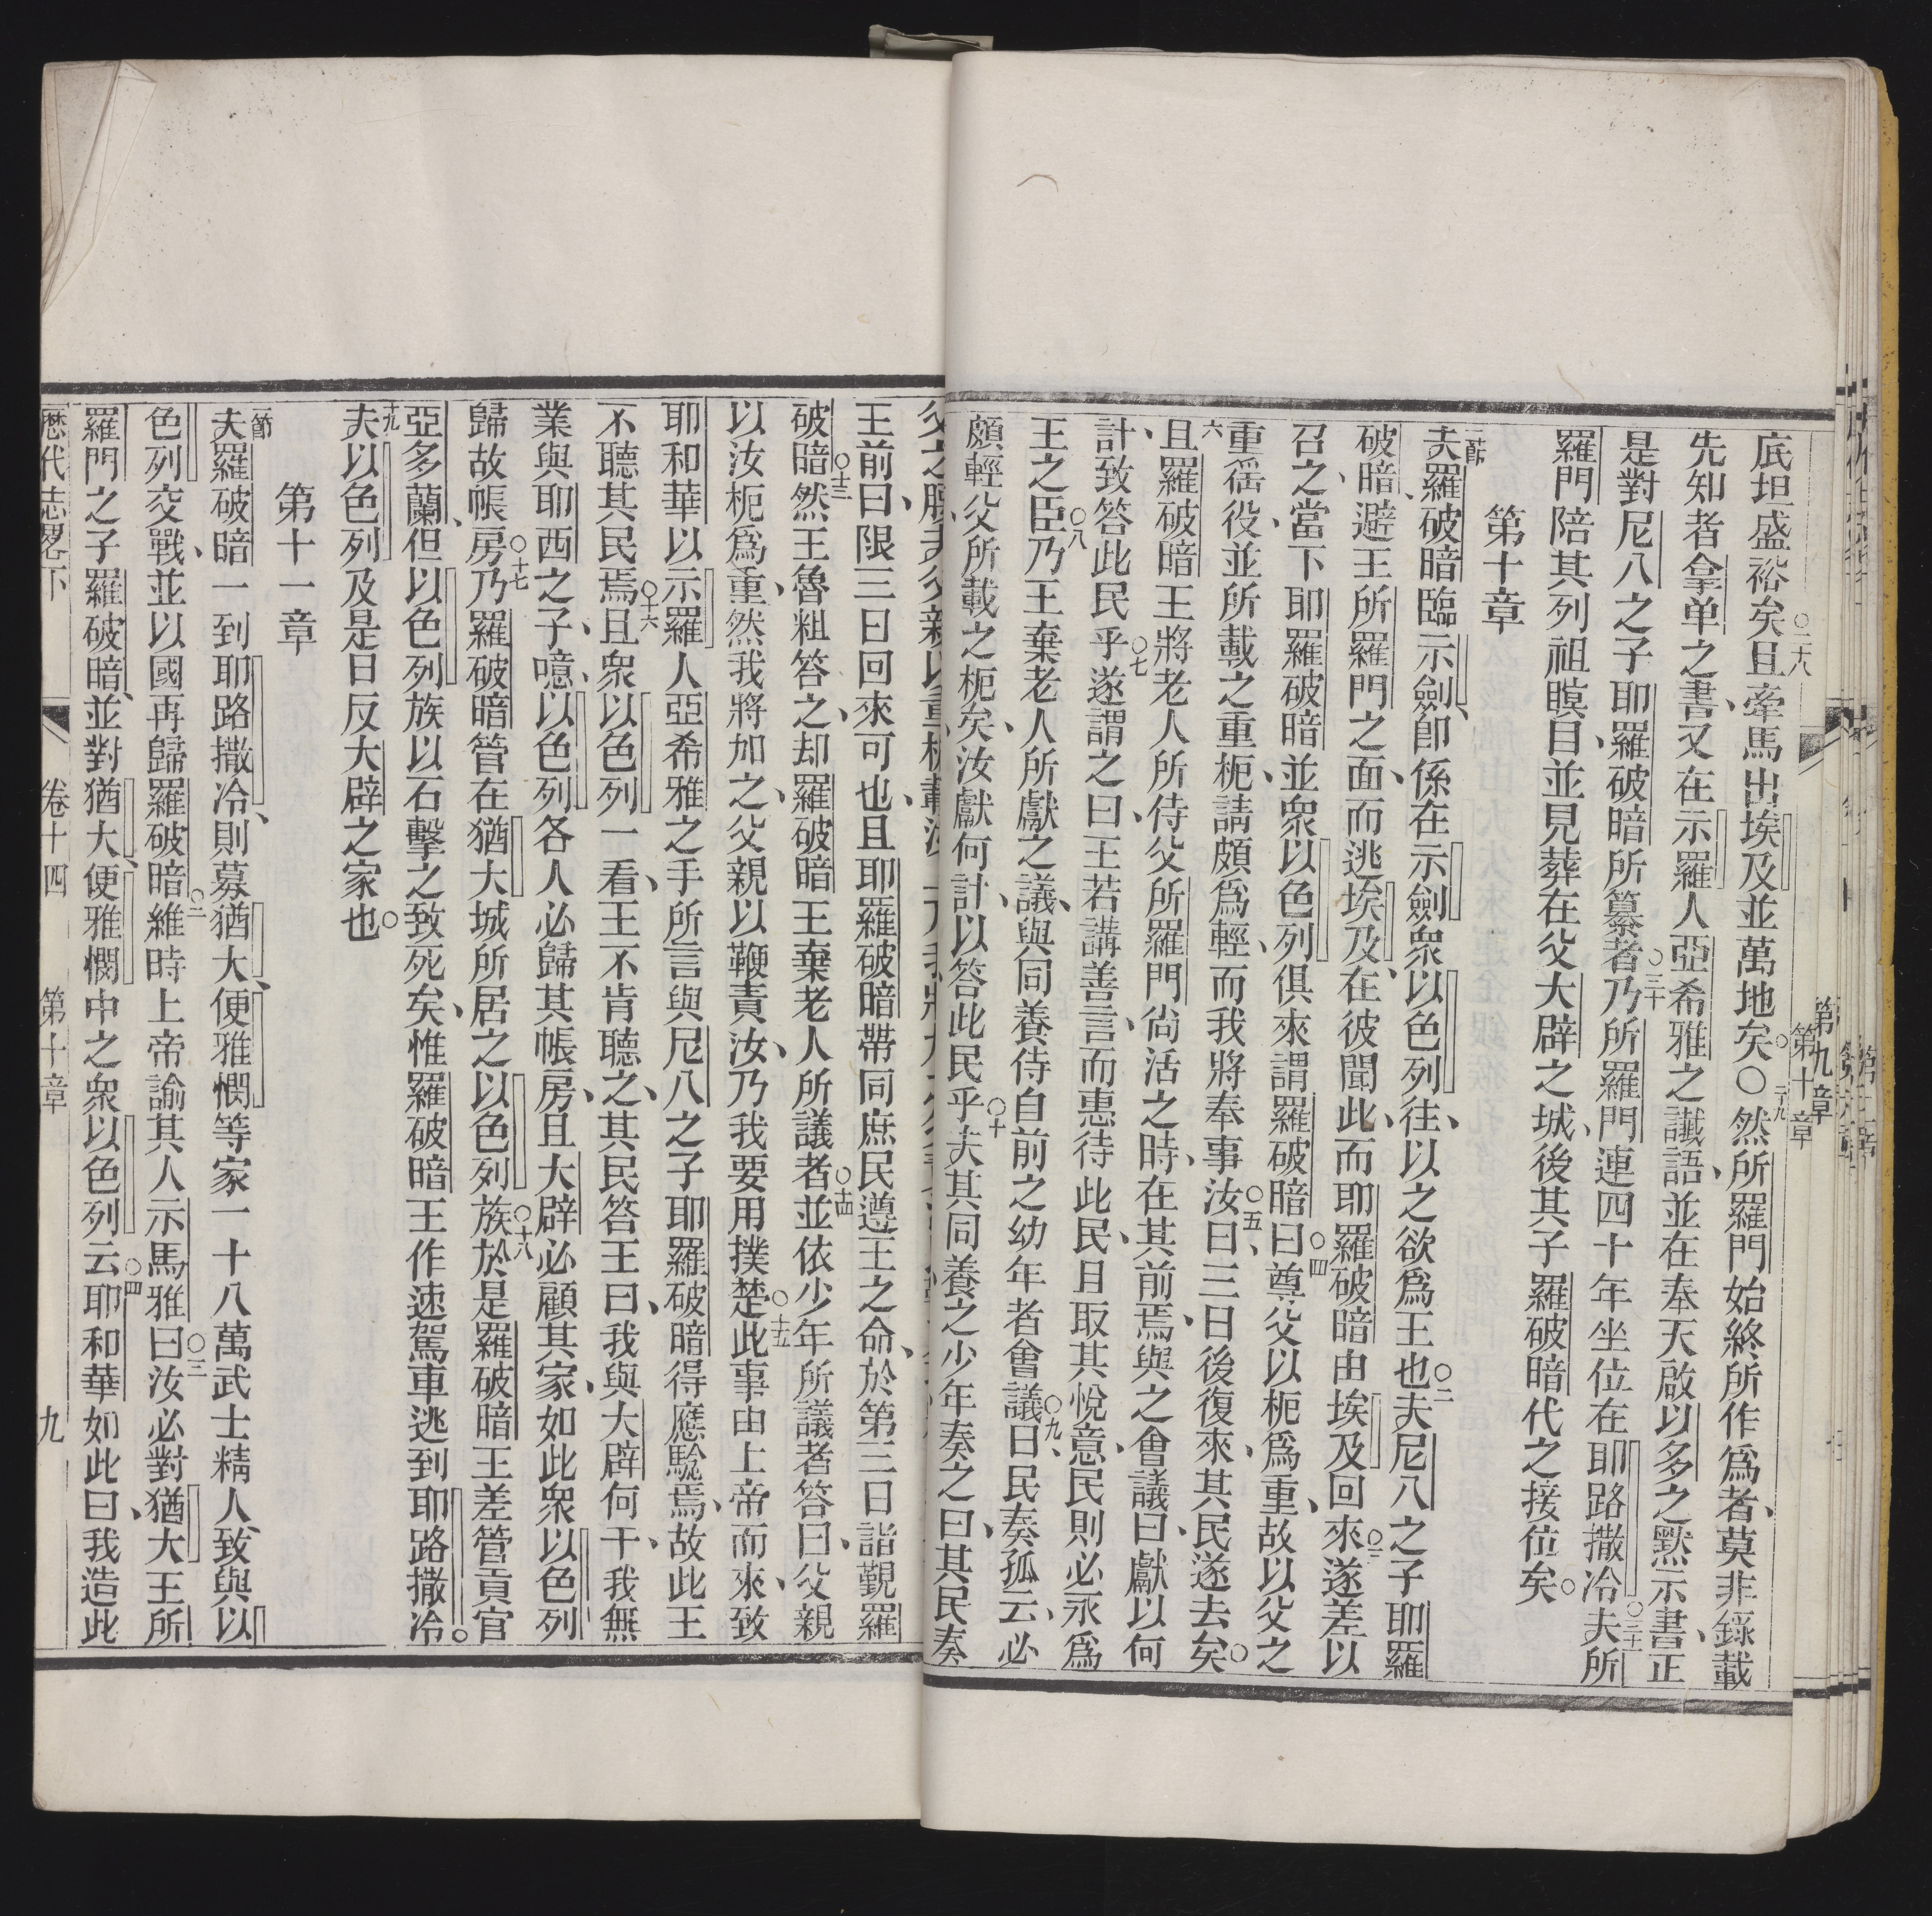 第九章
第十章
底坦盛裕矣。○二十八且牽馬出埃及並萬地矣。○二十九然所羅門始終所作爲者、莫非錄載
先知者拿单之書、又在示羅人亞希雅之讖語、並在奉天啟以多之默示書、正
是對尼八之子耶羅破暗所纂者○三十乃所羅門連四十年坐位在耶路撒冷○三十一夫所
羅門陪其列祖瞑目、並見葬在父大辟之城、後其子羅破暗代之接位矣。
第十章
一節夫羅破暗臨示劍、卽係在示劍衆以色列往、以之欲爲王也○二夫尼八之子耶羅
破暗、避王所羅門之面、而逃埃及、在彼聞此、而耶羅破暗由埃及回來○三遂差以
召之、當下耶羅破暗並衆以色列俱來謂羅破暗曰○四尊父以枙爲重、故以父之
重徭役、並所載之重枙、請頗爲輕、而我將奉事汝○五曰、三日後復來、其民遂去矣。
六且羅破暗王將老人所侍父所羅門尚活之時、在其前焉、與之會議曰、獻以何
計、致答此民乎○七遂謂之曰、王若講善言、而惠待此民、且取其悅意、民則必永爲
王之臣○八乃王棄老人所獻之議、與同養侍自前之幼年者會議○九曰、民奏孤云、必
頗輕父所載之枙矣、汝獻何計、以答此民乎○十夫其同養之少年奏之曰、其民奏
王前曰、限三日回來可也、且耶羅破暗帶同庶民遵王之命、於第三日詣覲羅
破暗○十三然王魯粗答之、却羅破暗王棄老人所議者○十四並依少年所議者答曰、父親
以汝枙爲重、然我將加之、父親以鞭責汝、乃我要用撲楚○十五此事由上帝而來、致
耶和華以示羅人亞希雅之手所言與尼八之子耶羅破暗得應驗焉、故此王
不聽其民焉○十六且衆以色列一看、王不肯聽之、其民答王曰、我與大辟何干、我無
業與耶西之子、噫、以色列各人必歸其帳房、且大辟必顧其家、如此衆以色列
歸故帳房○十七乃羅破暗管在猶大城所居之以色列族○十八於是羅破暗王差管貢官
亞多蘭、但以色列族以石擊之致死矣、惟羅破暗王作速駕車逃到耶路撒冷。
十九夫以色列及是日反大辟之家也。
第十一章
一節夫羅破暗一到耶路撒冷、則募猶大、便雅憫等家一十八萬武士精人、致與以
色列交戰、並以國再歸羅破暗○二維時上帝諭其人示馬雅曰○三汝必對猶大王所
羅門之子羅破暗、並對猶大、便雅憫中之衆以色列云○四耶和華如此曰、我造此
歷代志畧下
卷十四
第十章
九